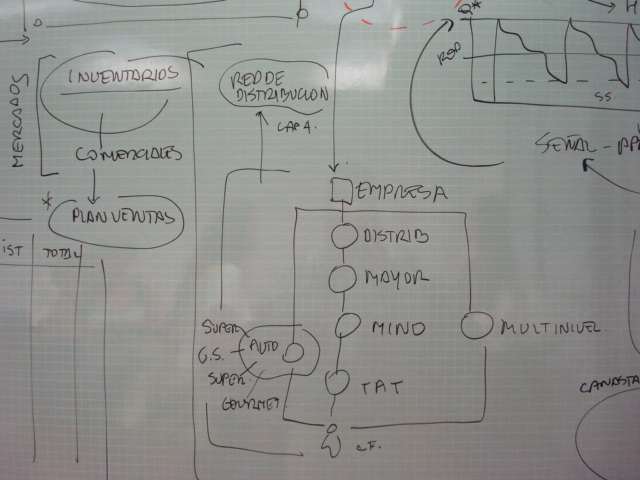 MERCADOS
INVENTARIOS
COMERCIALES
* PLAN VENTAS
IST
TOTAL
RED DE
DISTRIBUCION
CAP 4.
EMPRESA
DISTRIB
MAYOR
MINO
TAT
MULTINIVEL
SUPER
G.S.
AUTO
SUPER.
GOURMET
C.F.
Q*
H
SS
SEÑAL-
CANASTA